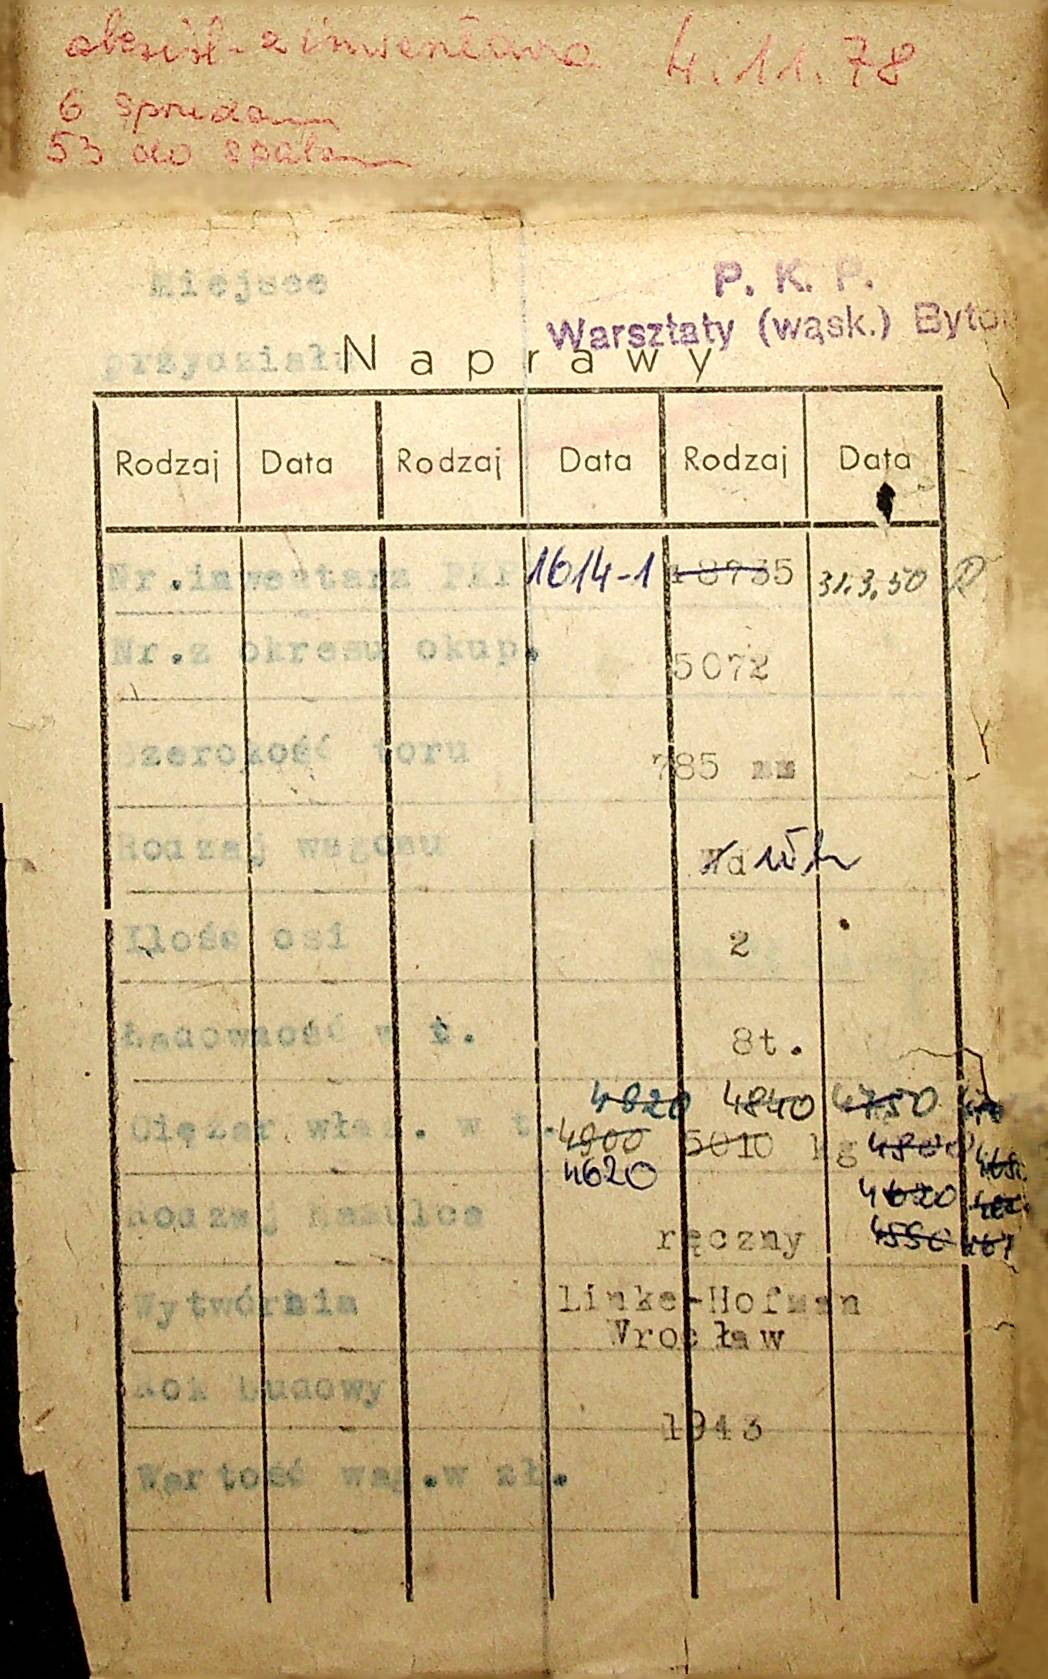 z inwentarza 4.11.78
6
53 do
Miejsce P. K. P.
Warsztaty (wąsk.)
przydziału Naprawy
Rodzaj Data Rodzaj Data Rodzaj Data
Nr.inwentarz PKP 1614-1 18735 31.3.50
Nr.z okresu okup. 5072
Szerokość toru 785 mm
Rodzaj wagonu Wd
Ilość osi 2
Ładowność w t. 8t.
4820 4840 4750
Ciężar włas. w t. 4900 5010 kg 4800
4620
4620
Rodzaj hamulca ręczny 4550
Wytwórnia Linke-Hofman
Wrocław
Rok budowy 1943
Wartość wag.w zł.